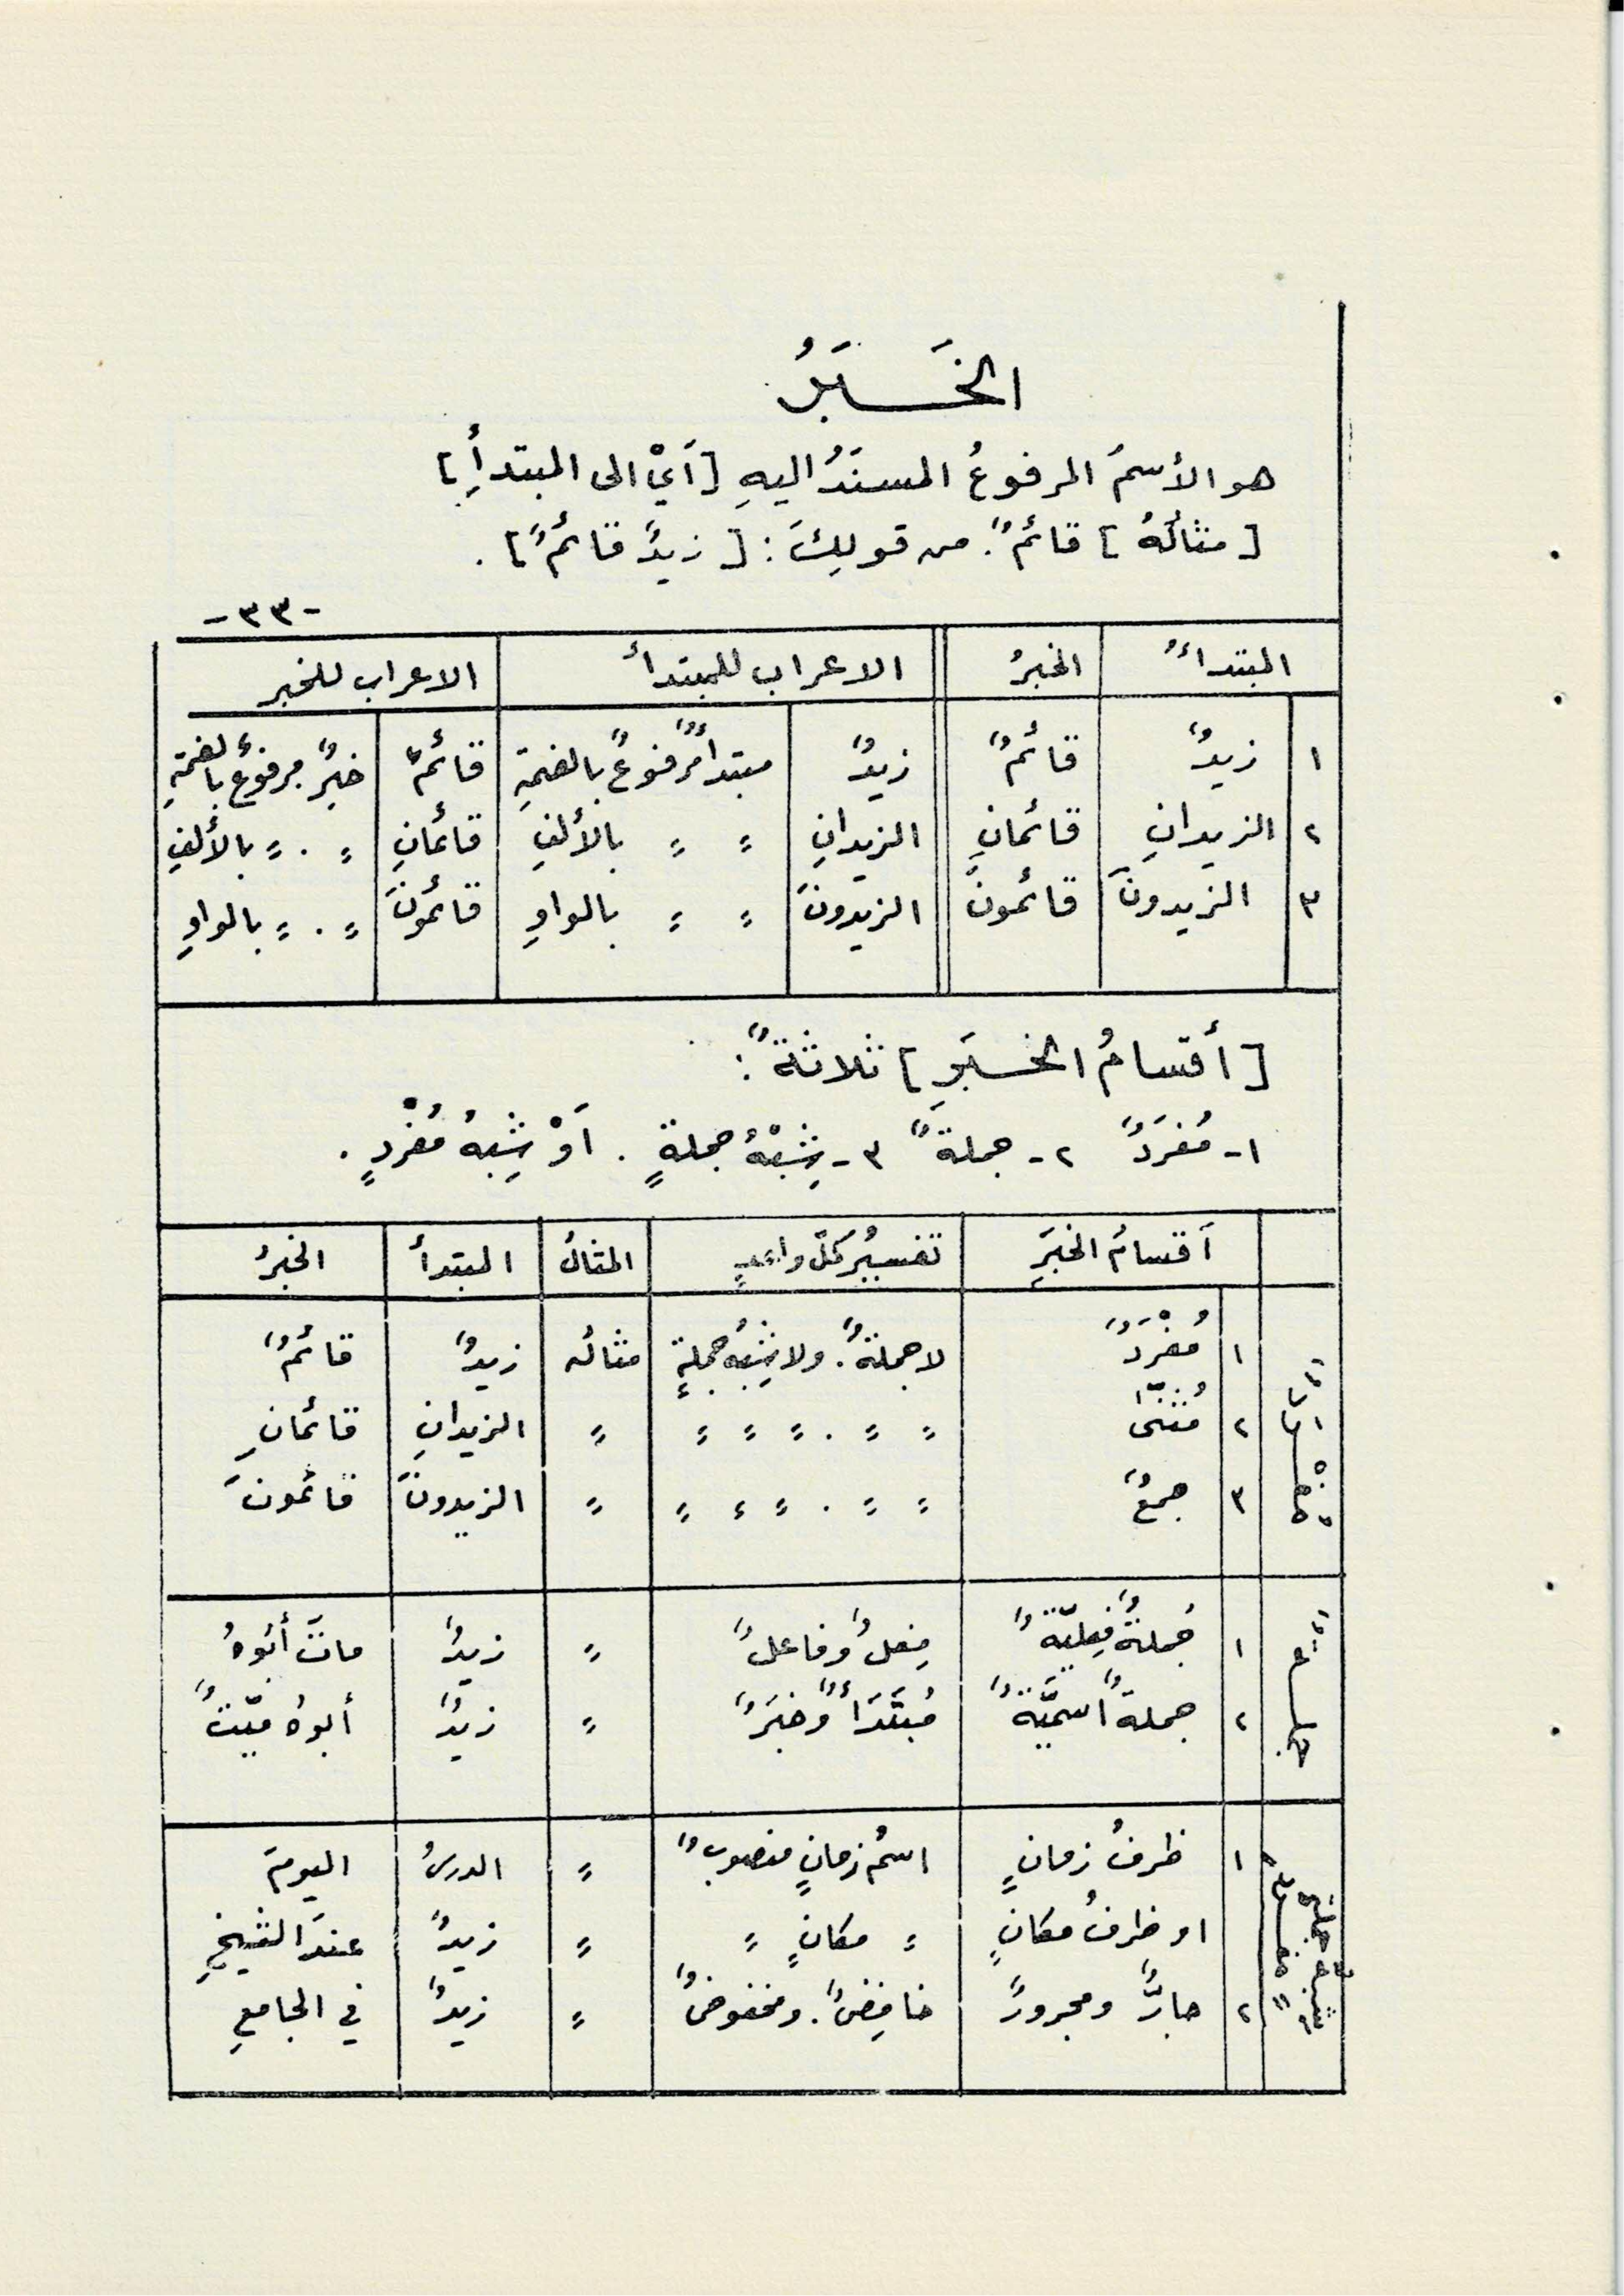 الخَبَرُ
هو الأسمُ المرفوعُ المسنَدُ اليهِ [أَيْ الى المبتدأِ]
[مثالُهُ] قائمٌ. من قولِكَ: [زيدٌ قائمٌ].
-٣٣-
المبتداءُ الخبرُ الاعراب للمبتدأ الاعراب للخبر
١ زيدٌ قائمٌ زيدٌ مبتدأٌ مرفوعٌ بالضمةِ قائمٌ خبرٌ مرفوعٌ بالضمةِ
٢ الزيدانِ قائمانِ الزيدانِ = = بالألفِ قائمانِ = . = بالألفِ
٣ الزيدونَ قائمونَ الزيدونَ = = بالواوِ قائمونَ = . = بالواوِ
[أقسامُ الخبَرِ] ثلاثةٌ:
١- مُفرَدٌ ٢- جملةٌ ٣- شِبْهُ جملةٍ. أَوْ شِبهُ مُفْردٍ.
أقسامُ الخبَرِ تفسيرُ كلِّ واحدٍ المثالُ المبتدأ الخبرُ
١ مُفْرَدٌ لا جملةٌ. ولا شِبهُ جملةٍ مثاله زيدٌ قائمٌ
٢ مُثنّى = = . = = = = الزيدانِ قائمانِ
٣ جمعٌ = = . = = = = الزيدونَ قائمونَ
١ جُملةٌ فِعليّةٌ فِعلٌ وفاعلٌ = زيدٌ ماتَ أبُوهُ
٢ جملةٌ اسميَّةٌ مُبتَدَأٌ وخبَرٌ = زيدٌ أبوهُ ميّتٌ
١ ظرفُ زمانٍ اسمُ زمانٍ منصوبٌ = الدرسُ اليومَ
او ظرفُ مكانٍ = مكانٍ = = زيدٌ عندَ الشيخِ
٢ جارٌّ ومجرورٌ خافِضٌ. ومخفوضٌ = زيدٌ في الجامعِ